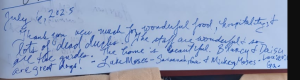 July 6, 2025
Thank you very much for wonderful food, hospitality &
Pots of dead ducks. The staff are wonderful & so
are the guides. The home is beautiful. & Nancy & Daisy
are great dogs! Luke Morea - Savannah and Mickey Morea -